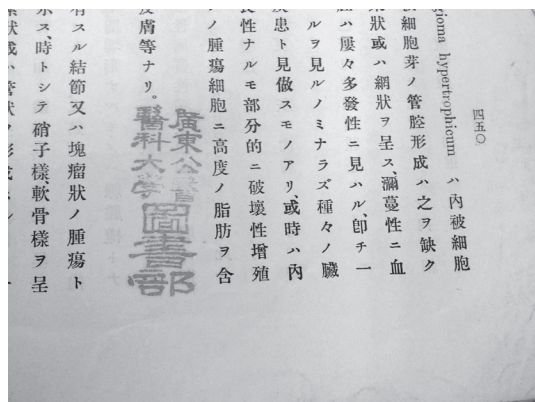 四五〇
gioma hypertrophicum ハ內被細胞
細胞芽ノ管腔形成ハ之ヲ缺ク
狀或ハ網狀ヲ呈ス、瀰蔓性ニ血
ハ屢々多發性ニ見ハル、卽チ一
ルヲ見ルノミナラズ種々ノ臟
患ト見做スモノアリ、或時ハ內
性ナルモ部分的ニ破壞性增殖
ノ腫瘍細胞ニ高度ノ脂肪ヲ含
皮膚等ナリ。
廣東公醫
醫科大學
圖書部
有スル結節又ハ塊瘤狀ノ腫瘍ト
ス、時トシテ硝子樣、軟骨樣ヲ呈
狀或ハ管狀ヲ形成